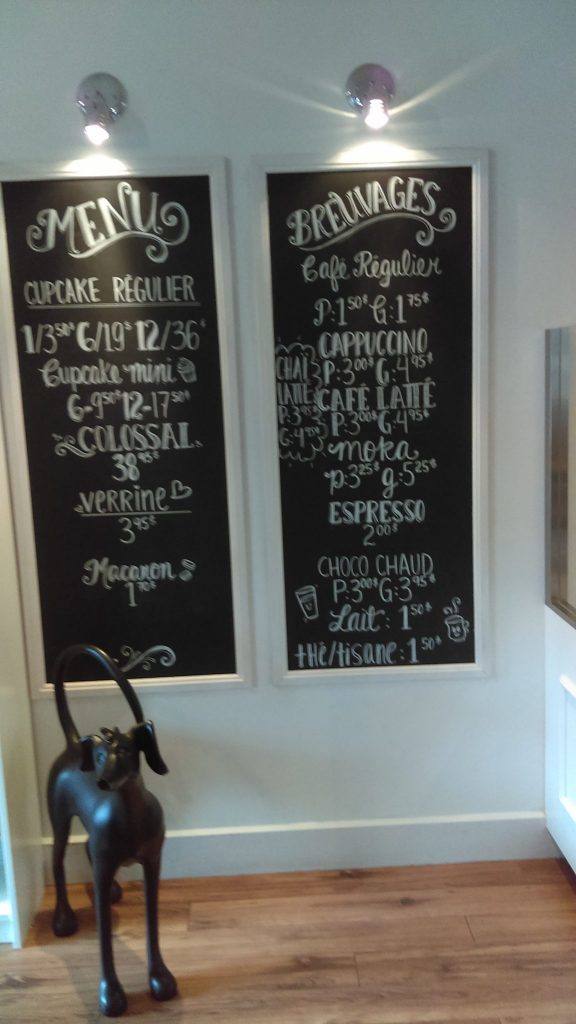 MENU
CUPCAKE RÉGULIER
1/3⁵⁰$ 6/19$ 12/36$
Cupcake mini
6-9⁵⁰$ 12-17⁵⁰$
COLOSSAL
38⁹⁵$
verrine
3⁹⁵$
Macaron
1⁷⁰$
BREUVAGES
Café Régulier
P:1⁵⁰$ G:1⁷⁵$
CAPPUCCINO
P:3⁰⁰$ G:4⁹⁵$
CAFÉ LATTÉ
P:3⁰⁰$ G:4⁹⁵$
CHAI
LATTE
P:3⁹⁵$
G:4
moka
p:3²⁵$ g:5²⁵$
ESPRESSO
2⁰⁰$
CHOCO CHAUD
P:3⁰⁰$ G:3⁹⁵$
Lait: 1⁵⁰$
thé/tisane: 1⁵⁰$